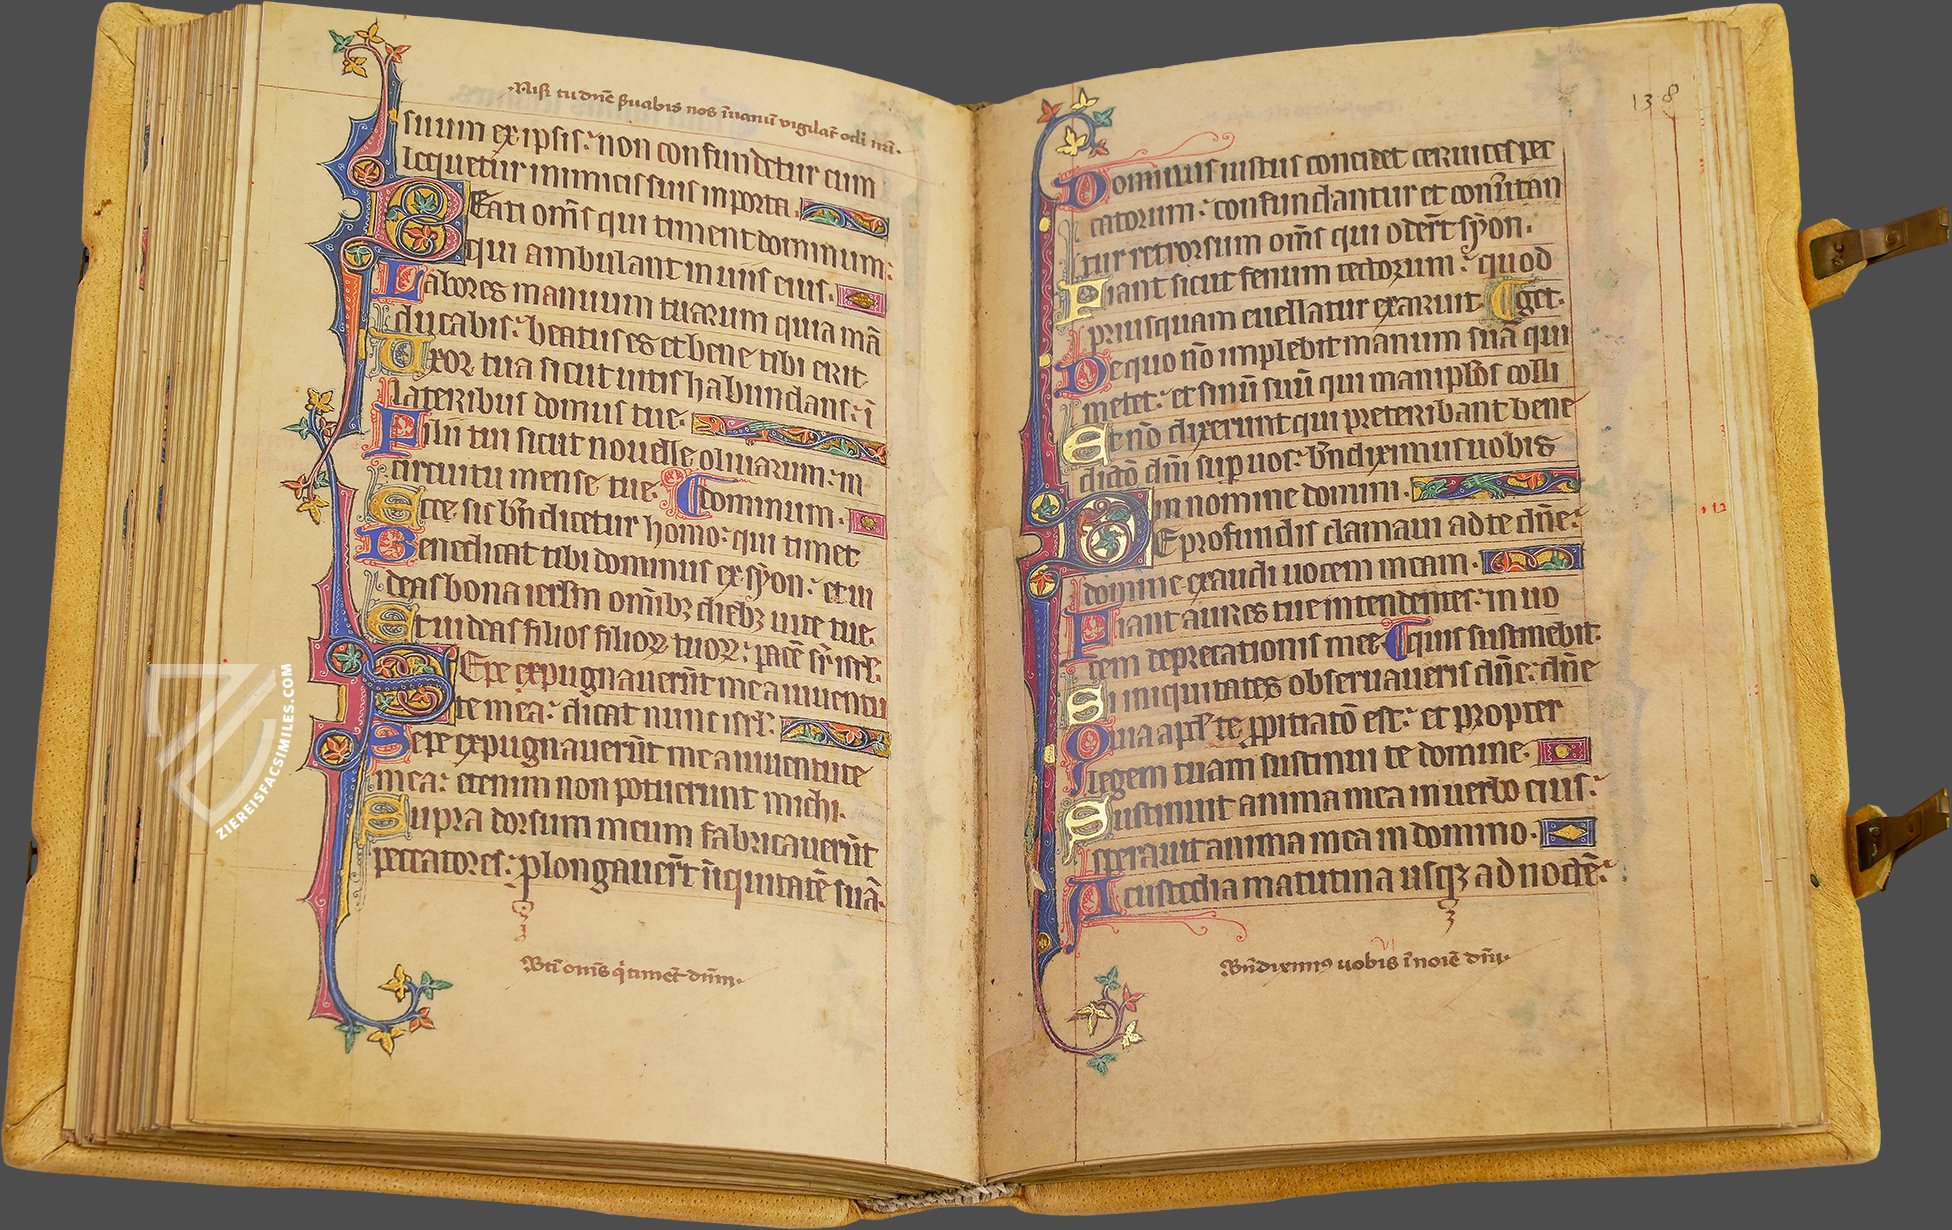 Nisi tu dñe s̃uabis nos ĩ uanũ vigilãt oc̃li nr̃i.
suum ex ipsis: non confundetur cum
loquetur inimicis suis in porta.
Beati om̃s qui timent dominum:
qui ambulant in uiis eius.
Labores manuum tuarum quia mã
ducabis: beatus es et bene tibi erit.
Uxor tua sicut uitis habundans: ĩ
lateribus domus tue.
Filii tui sicut nouelle oliuarum: in
circuitu mense tue. dominum.
Ecce sic bñdicetur homo: qui timet
Benedicat tibi dominus ex syon: et ui
deas bona ierlm̃ omĩbꝫ diebꝫ uite tue.
Et uideas filios filioꝝ tuoꝝ: pacẽ sr̃ isrl̃.
Sepe expugnauerũt me a iuuentu
te mea: dicat nunc isrl̃.
Sepe expugnauerũt me a iuuentute
mea: etenim non potuerunt michi.
Supra dorsum meum fabricauerũt
peccatores: ꝓlongauer̃t iñquitatẽ suã.
Bt̃i om̃s q̇ timẽt dñm.
138
Dominus iustus concidet ceruices pec
catorum: confundantur et conũtan
tur retrorsum om̃s qui oder̃t syon.
Fiant sicut fenum tectorum: quod
priusquam euellatur exaruit. get.
De quo nõ implebit manum suã qui
metet: et sinũ suũ qui manipl̃os colli
Et nõ dixerunt qui preteribant bene
dictõ dñi sup uos: bñdiximus uobis
in nomine domini.
De profundis clamaui ad te dñe:
domine exaudi uocem meam.
Fiant aures tue intendentes: in uo
cem deprecationis mee. quis sustinebit.
Si iniquitates obseruaueris dñe: dñe
Quia apd̃ te ꝓpitiatõ est: et propter
legem tuam sustinui te domine.
Sustinuit anima mea in uerbo eius:
sperauit anima mea in domino.
A custodia matutina usqꝫ ad noctẽ:
12
vi
Bñdiximꝰ uobis ĩ noĩe dñi.
ZIEREISFACSIMILES.COM